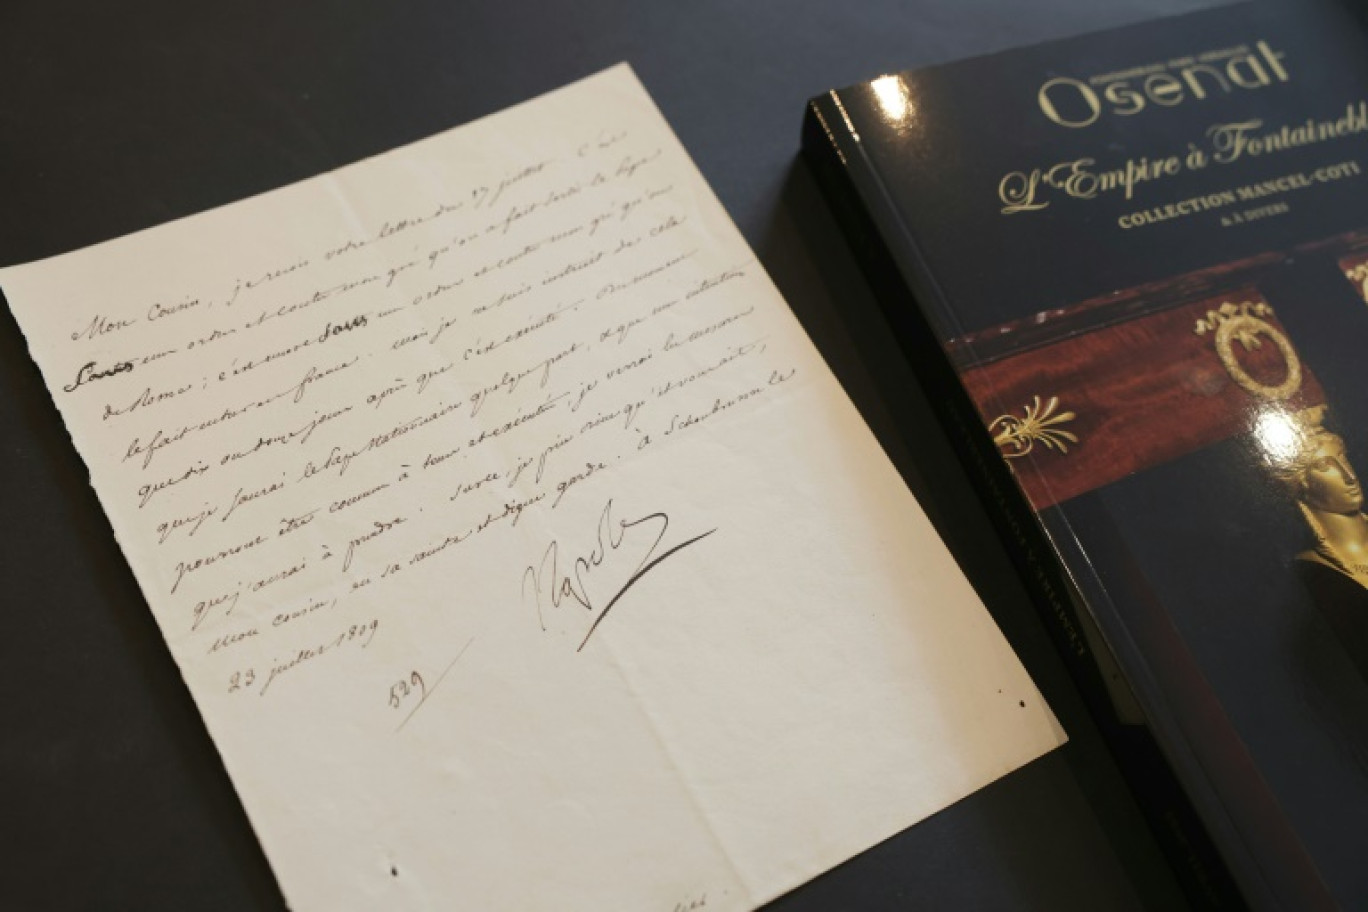 Mon Cousin, je reçois votre lettre du 17 juillet. C'est
sans mon ordre et contre mon gré qu'on a fait sortir le Pape
de Rome ; c'est encore sans mon ordre et contre mon gré qu'on
le fait entrer en france. mais je ne suis instruit de cela
que dix ou douze jours après que c'est exécuté. Du moment
que je saurai le Pape stationnaire quelque part, et que mes intentions
pourront être connues à tems et exécutées, je verrai les mesures
que j'aurai à prendre. Sur ce, je prie
mon cousin, en sa sainte et digne garde. à Schonbrunn le
23 juillet 1809
529
Osenat
L'Empire à Fontainebl
COLLECTION MANCEL-COTI
& À DIVERS